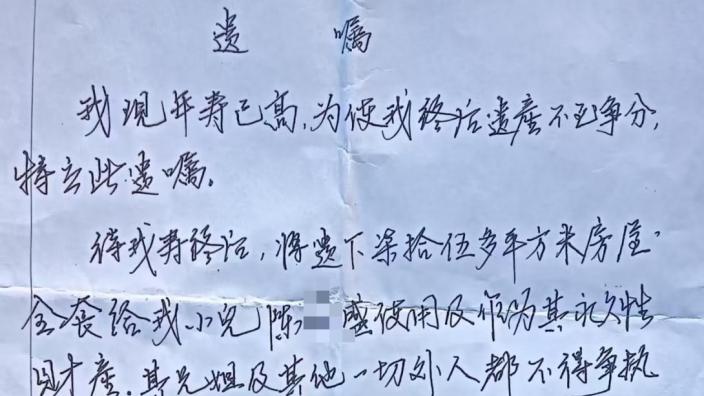 遗 嘱
我现年寿已高,为使我终后遗产不至争分,
特立此遗嘱。
待我寿终后,将遗下柒拾伍多平方米房屋
全丧给我小儿陈 盛使用及作为其永久性
财产。其兄姐及其他一切外人都不得争执